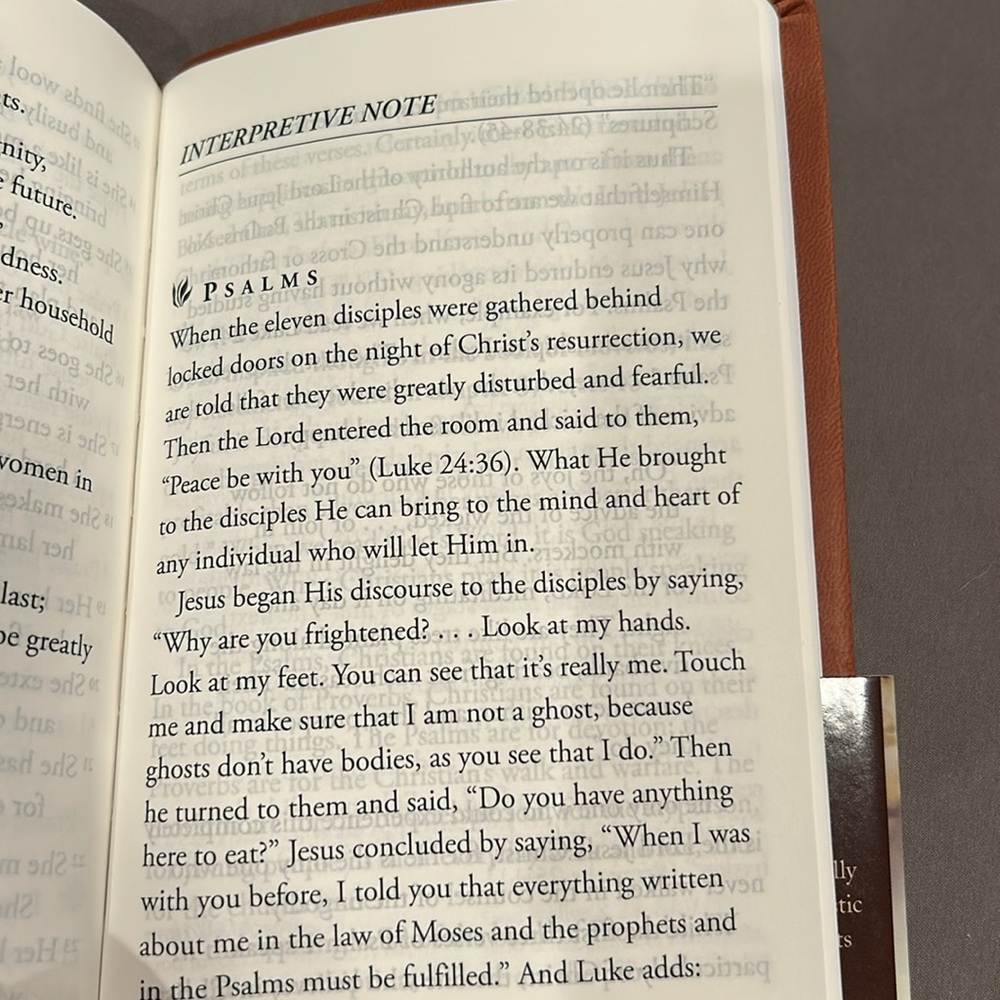 ts.
nity,
e future.
dness.
er household
women in
last;
be greatly
INTERPRETIVE NOTE
PSALMS
When the eleven disciples were gathered behind
locked doors on the night of Christ's resurrection, we
are told that they were greatly disturbed and fearful.
Then the Lord entered the room and said to them,
“Peace be with you” (Luke 24:36). What He brought
to the disciples He can bring to the mind and heart of
any individual who will let Him in.
Jesus began His discourse to the disciples by saying,
“Why are you frightened? . . . Look at my hands.
Look at my feet. You can see that it's really me. Touch
me and make sure that I am not a ghost, because
ghosts don't have bodies, as you see that I do.” Then
he turned to them and said, “Do you have anything
here to eat?” Jesus concluded by saying, “When I was
with you before, I told you that everything written
about me in the law of Moses and the prophets and
in the Psalms must be fulfilled.” And Luke adds:
lly
tic
ts